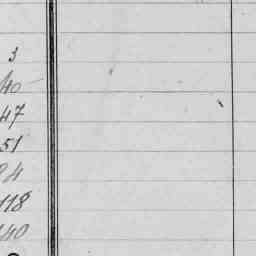 3
40
47
51
84
118
140